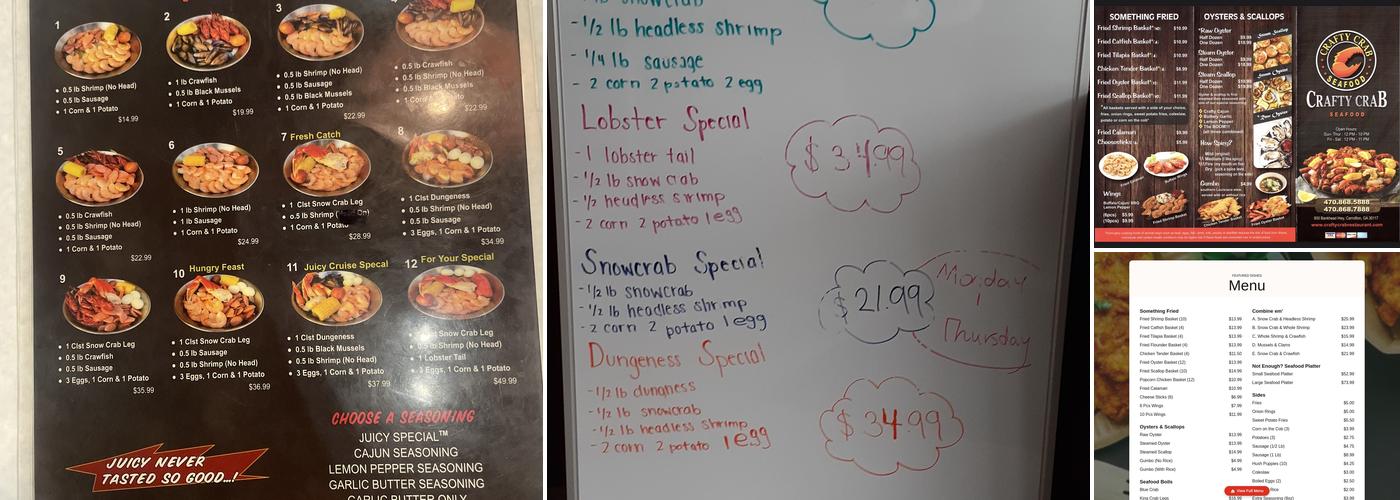 1
2
3
4
1 lb Shrimp (No Head)
0.5 lb Sausage
1 Corn & 1 Potato
$14.99
1 lb Crawfish
0.5 lb Black Mussels
1 Corn & 1 Potato
$19.99
0.5 lb Shrimp (No Head)
0.5 lb Sausage
0.5 lb Black Mussels
1 Corn & 1 Potato
$22.99
0.5 lb Crawfish
0.5 lb Shrimp (No Head)
0.5 lb Black Mussels
$22.99
5
6
7 Fresh Catch
8
0.5 lb Crawfish
0.5 lb Shrimp (No Head)
0.5 lb Sausage
1 Corn & 1 Potato
$22.99
1 lb Shrimp (No Head)
1 lb Sausage
1 Corn & 1 Potato
$24.99
1 Clst Snow Crab Leg
0.5 lb Shrimp
1 Corn & 1 Potato
$28.99
1 Clst Dungeness
0.5 lb Shrimp (No Head)
0.5 lb Sausage
3 Eggs, 1 Corn & 1 Potato
$34.99
9
10 Hungry Feast
11 Juicy Cruise Special
12 For Your Special
1 Clst Snow Crab Leg
0.5 lb Crawfish
0.5 lb Shrimp (No Head)
3 Eggs, 1 Corn & 1 Potato
$35.99
1 Clst Snow Crab Leg
0.5 lb Sausage
0.5 lb Shrimp (No Head)
3 Eggs, 1 Corn & 1 Potato
$36.99
1 Clst Dungeness
0.5 lb Black Mussels
0.5 lb Shrimp (No Head)
3 Eggs, 1 Corn & 1 Potato
$37.99
Snow Crab Leg
Shrimp (No Head)
1 Lobster Tail
3 Eggs, 1 Corn & 1 Potato
$49.99
JUICY NEVER
TASTED SO GOOD...!
CHOOSE A SEASONING
JUICY SPECIAL™
CAJUN SEASONING
LEMON PEPPER SEASONING
GARLIC BUTTER SEASONING
GARLIC BUTTER ONLY
-1/2 lb headless shrimp
-1/4 lb sausage
- 2 corn 2 potato 2 egg
Lobster Special
-1 lobster tail
-1/2 lb snow crab
-1/2 headless shrimp
-2 corn 2 potato 1 egg
$34.99
Snowcrab Special
-1/2 lb snowcrab
-1/2 lb headless shrimp
-2 corn 2 potato 1 egg
$21.99
Monday
Thursday
Dungeness Special
-1/2 lb dungness
-1/2 lb snowcrab
-1/2 lb headless shrimp
-2 corn 2 potato 1 egg
$34.99
SOMETHING FRIED
Fried Catfish Basket
Fried Tilapia Basket
Chicken Tender Basket
Fried Oyster Basket
Fried Scallop Basket
Fried Calamari
Cheesesticks
Wings
OYSTERS & SCALLOPS
Raw Oyster
Half Dozen
One Dozen
Steam Oyster
Half Dozen
One Dozen
Steam Scallop
Half Dozen
One Dozen
How Spicy?
Gumbo
CRAFTY CRAB
SEAFOOD
CRAFTY CRAB
SEAFOOD
Open Hours:
470.868.5888
470.868.7888
www.craftycrabrestaurant.com
FEATURED DISHES
Menu
Something Fried
Fried Shrimp Basket (10) $13.99
Fried Catfish Basket (4) $13.99
Fried Tilapia Basket (4) $13.99
Fried Flounder Basket (4) $13.99
Chicken Tender Basket (4) $11.50
Fried Oyster Basket (12) $13.99
Fried Scallop Basket (10) $14.99
Popcorn Chicken Basket (12) $10.99
Fried Calamari $10.99
Cheese Sticks (6) $6.99
6 Pcs Wings $7.99
10 Pcs Wings $11.99
Oysters & Scallops
Raw Oyster $13.99
Steamed Oyster $13.99
Steamed Scallop $16.99
Gumbo (No Rice) $4.99
Gumbo (With Rice) $4.99
Seafood Boils
Blue Crab
King Crab Legs
Combine em'
A. Snow Crab & Headless Shrimp $25.99
B. Snow Crab & Whole Shrimp $23.99
C. Whole Shrimp & Crawfish $15.99
D. Mussels & Clams $14.99
E. Snow Crab & Crawfish $21.99
Not Enough? Seafood Platter
Small Seafood Platter $52.99
Large Seafood Platter $73.99
Sides
Fries $5.00
Onion Rings $5.00
Sweet Potato Fries $5.50
Corn on the Cob (3) $3.99
Potatoes (3) $2.75
Sausage (1/2 Lb) $4.75
Sausage (1 Lb) $8.99
Hush Puppies (10) $4.25
Coleslaw $3.00
Boiled Eggs (2) $2.50
Rice $2.00
View Full Menu